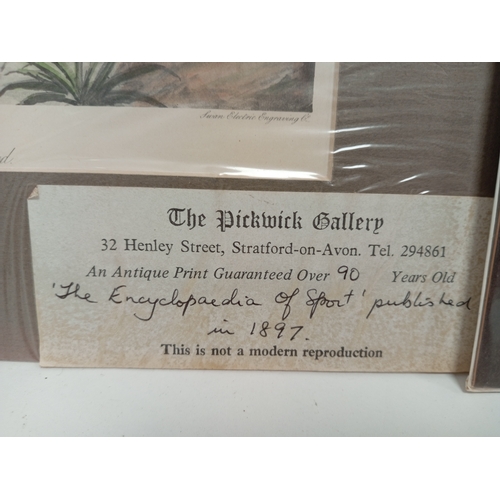 Swan Electric Engraving Cº.
d.
The Pickwick Gallery
32 Henley Street, Stratford-on-Avon. Tel. 294861
An Antique Print Guaranteed Over 90 Years Old
'The Encyclopaedia of Sport' published
in 1897.
This is not a modern reproduction